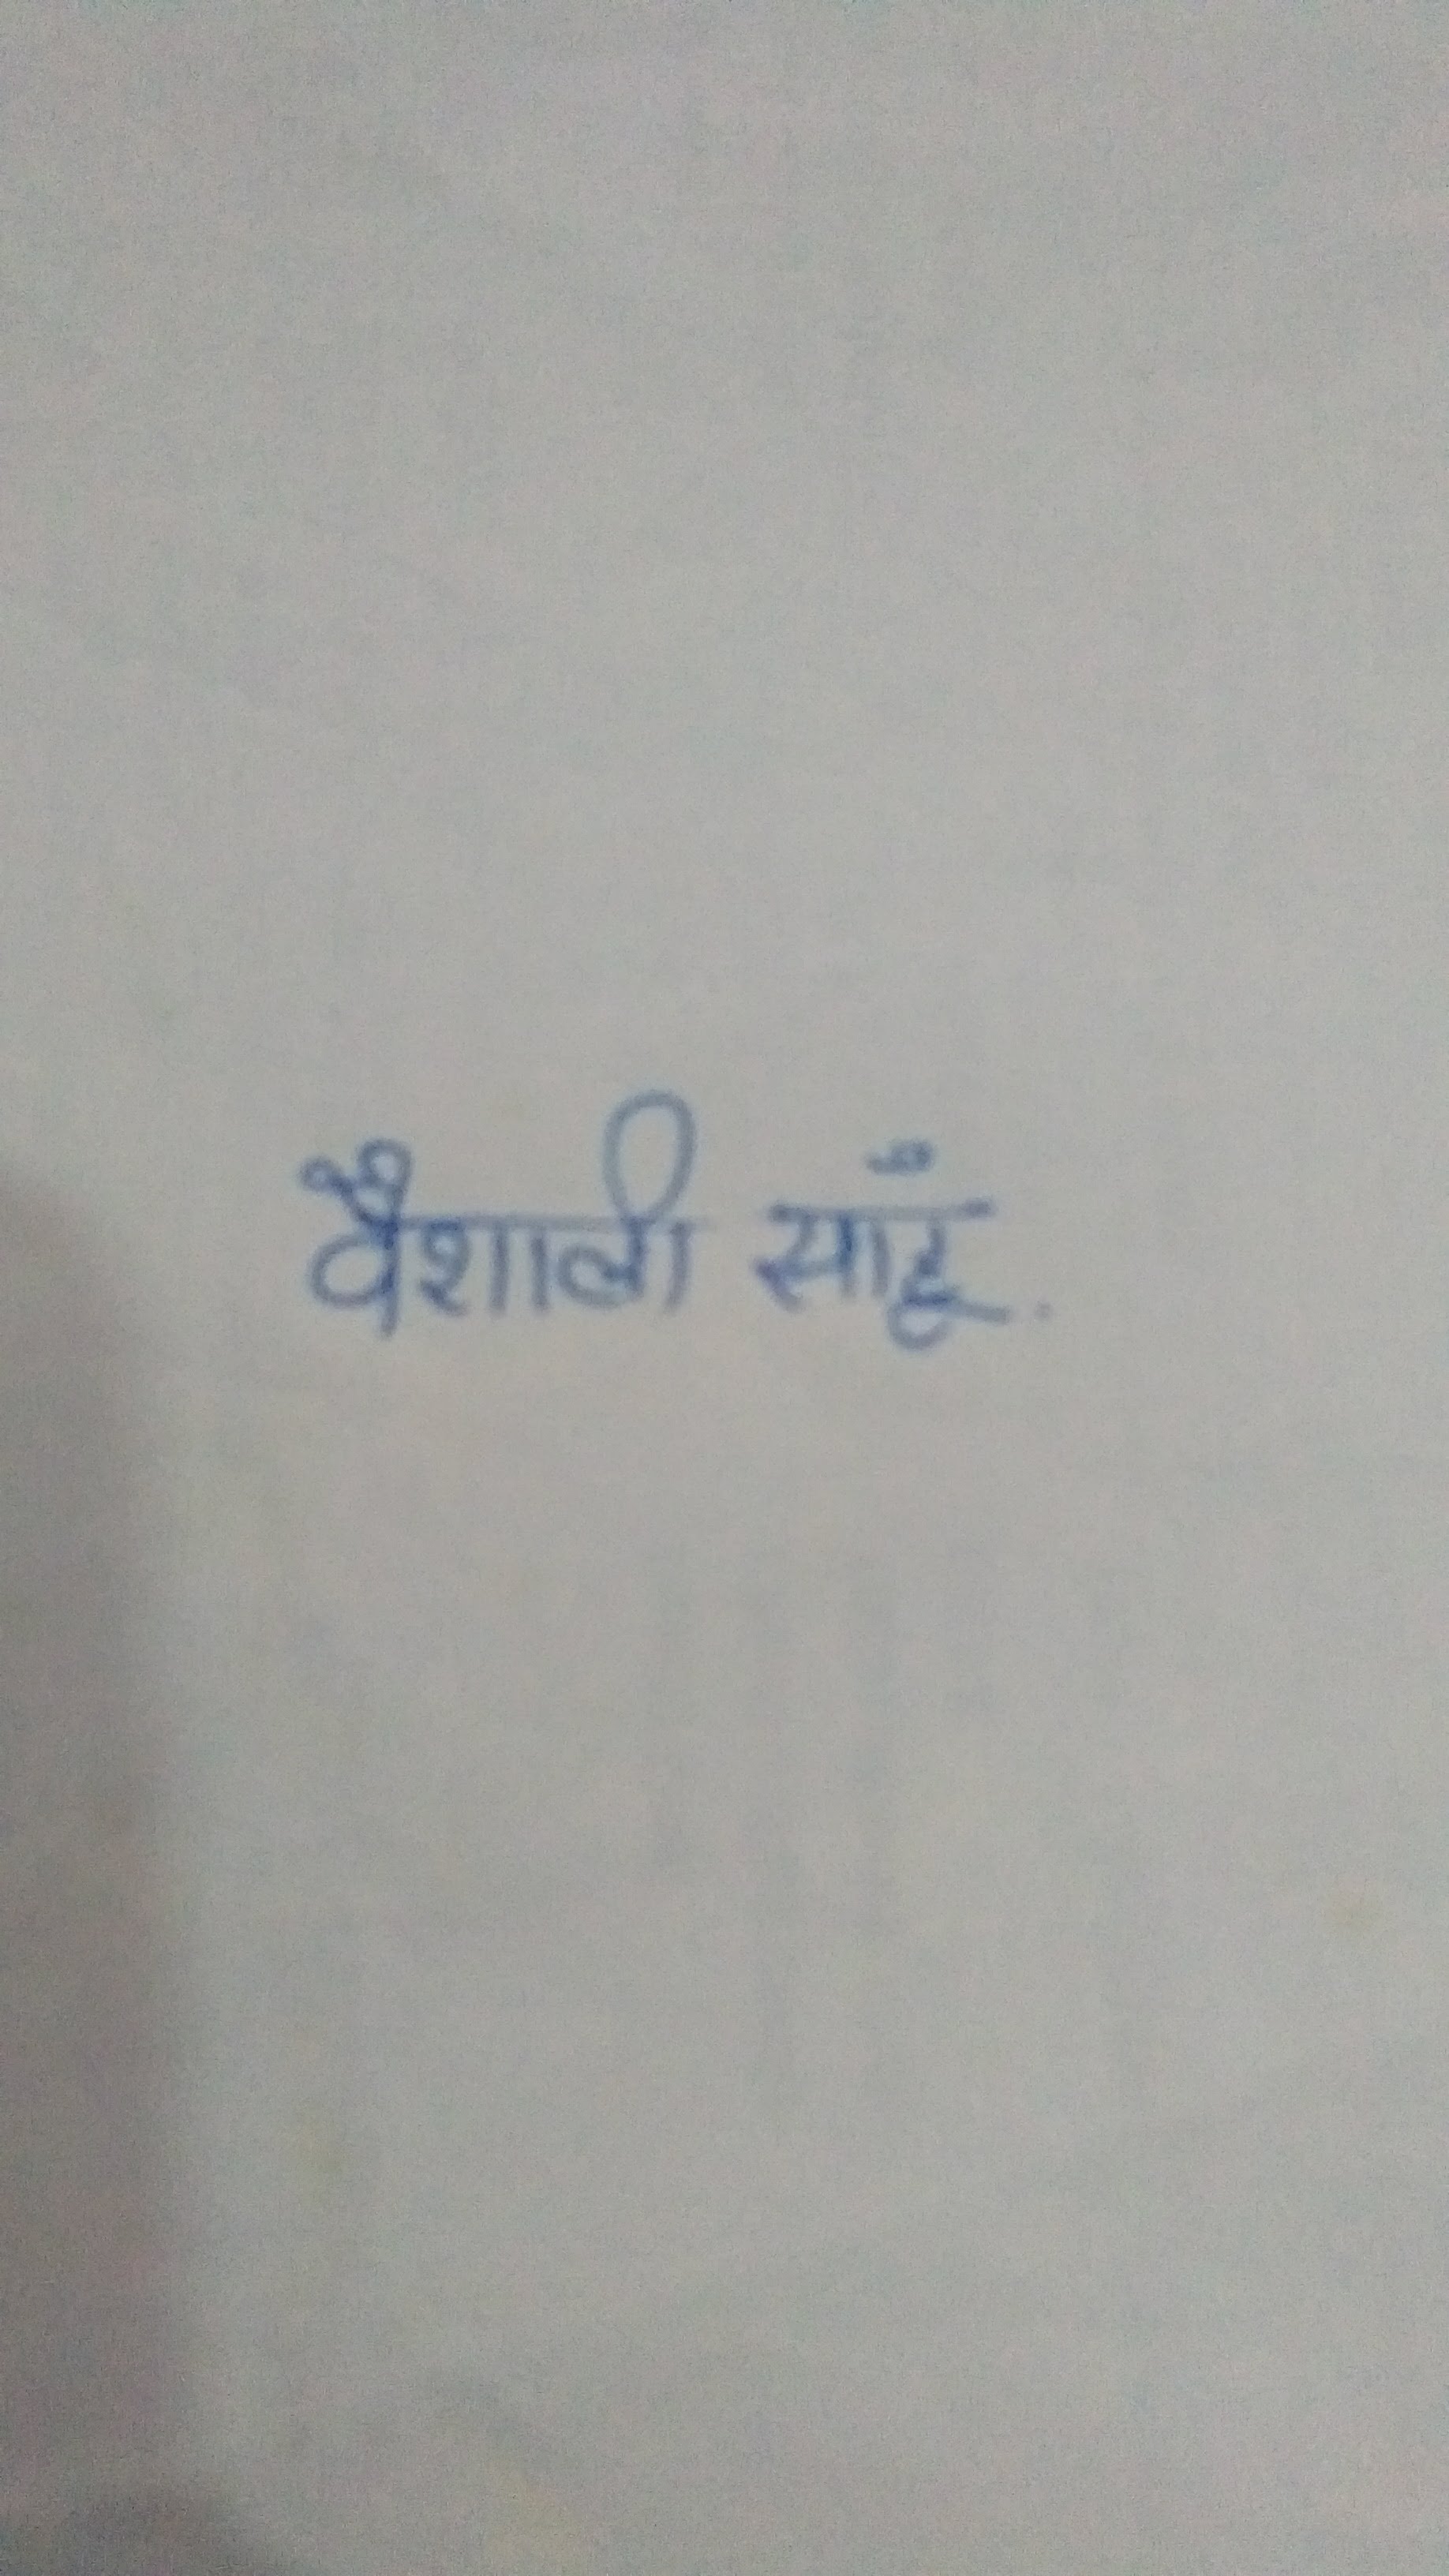 वैशाली साहू.